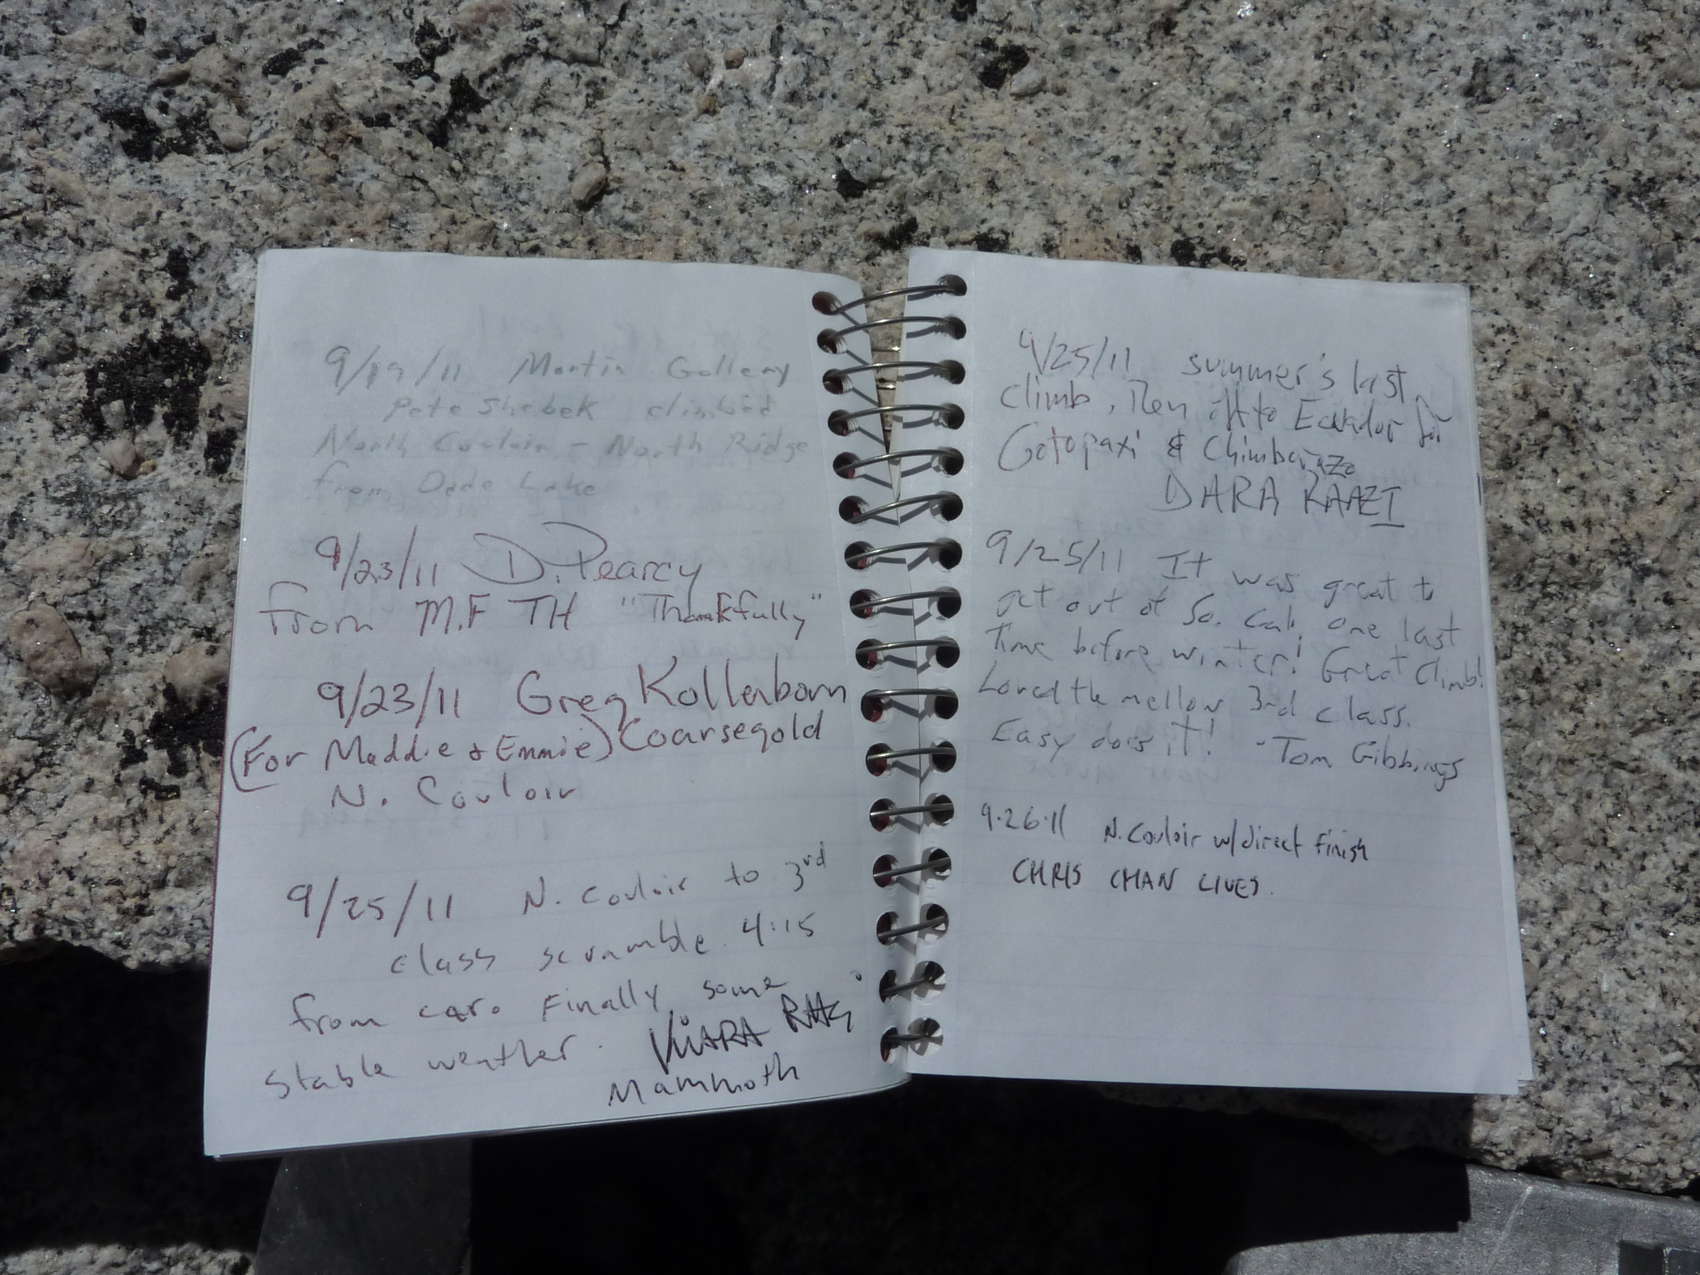 9/19/11 Martin Gollery
Pete Shebek climbed
North Couloir - North Ridge
from Dade Lake
9/23/11 D. Pearcy
from M.F TH "Thankfully"
9/23/11 Greg Kollenborn
(For Maddie & Emmie) Coarsegold
N. Couloir
9/25/11 N. Couloir to 3rd
class scramble. 4:15
from car. Finally some
stable weather.
Mammoth
9/25/11 summer's last
climb, Then off to Ecuador for
Cotopaxi & Chimborazo
DARA KAAZI
9/25/11 It was great to
get out of So. Cal. one last
Time before winter! Great Climb!
Loved the mellow 3rd class.
Easy does it! - Tom Gibbings
9.26.11 N. Couloir w/direct finish
CHRIS CHAN LIVES.